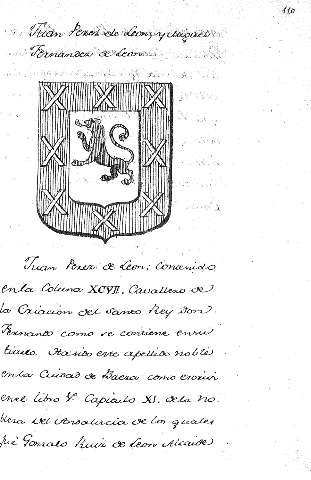 110
Juan Perez de Leon, y Miguel
Fernandez de Leon
Juan Perez de Leon: Contenido
en la Coluna XCVII. Cavallero de
la Criacion del Santo Rey Don
Fernando como se contiene en su
titulo. Ha sido este apellido noble
en la Ciudad de Baeza como
en el libro Capitulo XI. de la No
bleza del Andalucia de los quales
fué Gonzalo Ruiz de Leon Alcaide